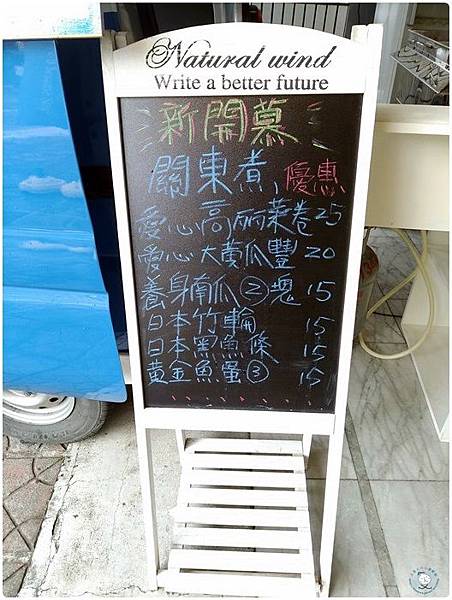 Natural wind
Write a better future
新開慕
關東煮,優惠
愛心高麗菜卷 25
愛心大黃瓜豐 20
養身南瓜②塊 15
日本竹輪 15
日本黑魚條 15
黃金魚蛋③ 15